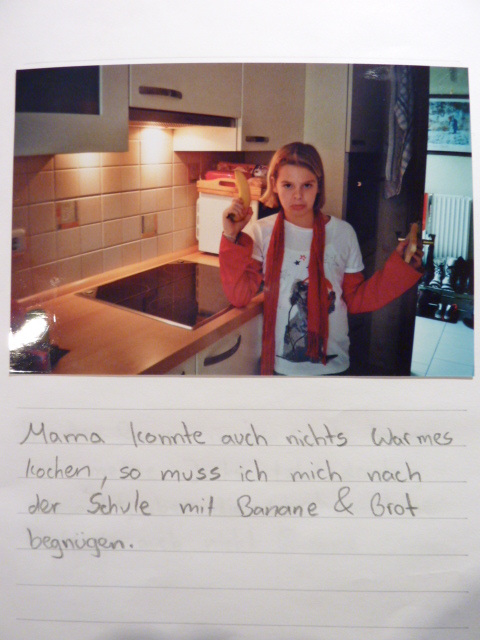 Mama konnte auch nichts Warmes
kochen, so muss ich mich nach
der Schule mit Banane & Brot
begnügen.